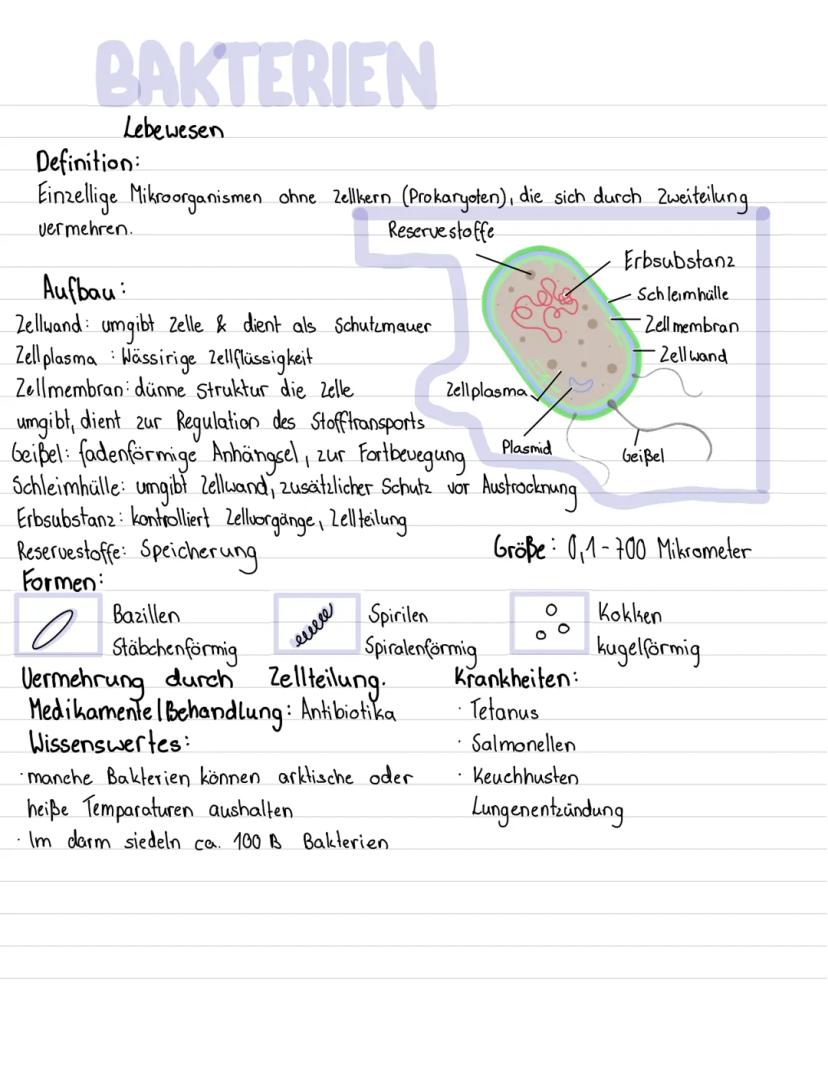 BAKTERIEN
Lebewesen
Definition:
Einzellige Mikroorganismen ohne Zellkern (Prokaryoten), die sich durch Zweiteilung
vermehren.
Reservestoffe
Erbsubstanz
Schleimhülle
Zellmembran
Zellwand
Zellplasma
Plasmid
Geißel
Aufbau:
Zellwand: umgibt Zelle & dient als Schutzmauer
Zellplasma : Wässirige Zellflüssigkeit
Zellmembran: dünne Struktur die Zelle
umgibt, dient zur Regulation des Stofftransports
Geißel: fadenförmige Anhängsel, zur Fortbewegung
Schleimhülle: umgibt Zellwand, zusätzlicher Schutz vor Austrocknung
Erbsubstanz: kontrolliert Zellvorgänge, Zellteilung
Reservestoffe: Speicherung
Größe: 0,1-700 Mikrometer
Formen:
Bazillen
Stäbchenförmig
Spirilen
Spiralenförmig
Kokken
kugelförmig
Vermehrung durch Zellteilung.
Medikamente/Behandlung: Antibiotika
Wissenswertes:
· manche Bakterien können arktische oder
heiße Temparaturen aushalten
· Im darm siedeln ca. 100 B Bakterien
Krankheiten:
· Tetanus
· Salmonellen
· Keuchhusten
Lungenentzündung